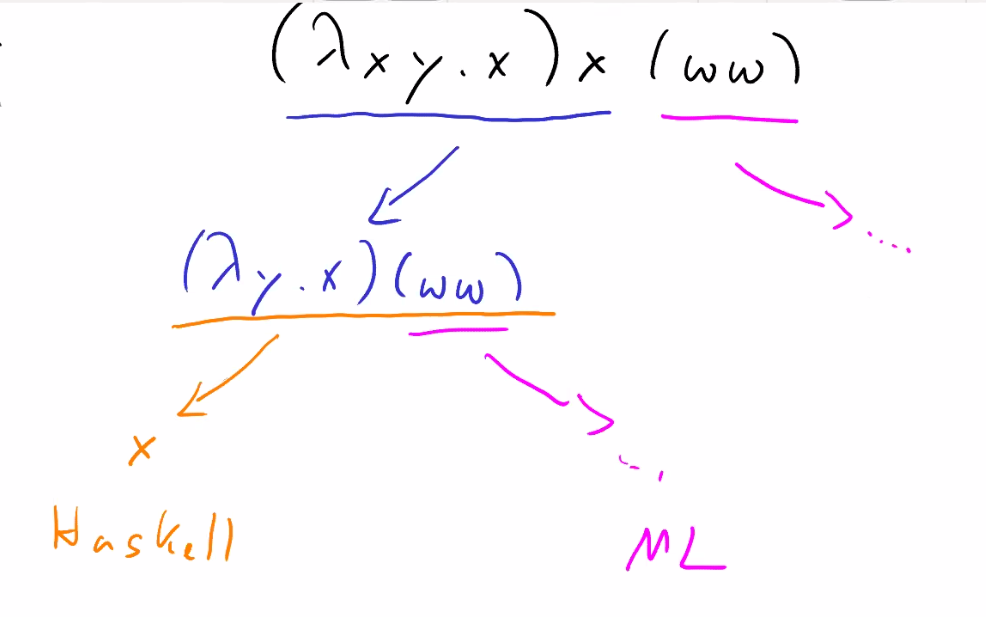 (λxy.x)x(ωω)
....
(λy.x)(ωω)
x
...
Haskell
ML